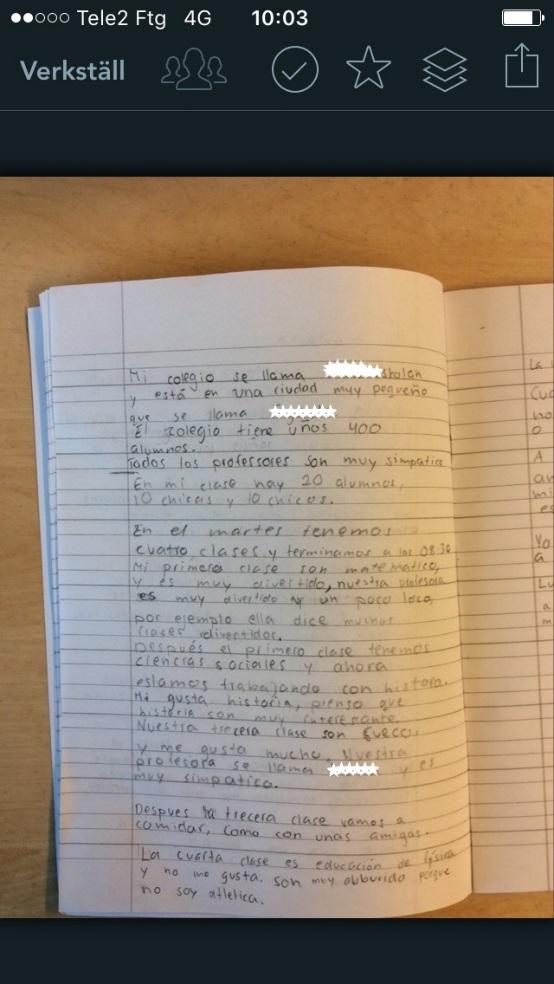 Tele2 Ftg 4G 10:03
Verkställ
Mi colegio se llama skolan
y está en una ciudad muy pequeño
que se llama
El colegio tiene uños 400
alumnos.
Todos los professores son muy simpatico
En mi clase hay 20 alumnos,
10 chicas y 10 chicos.
En el martes tenemos
cuatro clases y terminamos a las 08.30
Mi primera clase son matematico,
y es muy divertido, nuestra profesora
es muy divertido y un poco loco,
por ejemplo ella dice muchos
divertidos.
Después el primero clase tenemos
ciencias sociales y ahora
estamos trabajando con historia.
Mi gusta historia, pienso que
historia son muy interesante.
Nuestra trecera clase son sueco,
y me gusta mucho. Nuestra
profesora se llama y es
muy simpatico.
Despues la trecera clase vamos a
comidar, como con unas amigas.
La cuarta clase es educación de física
y no me gusta. son muy abburido porque
no soy atletica.
La
Cua
no
o
A
an
mi
es
Yo
a
Lu
a
m